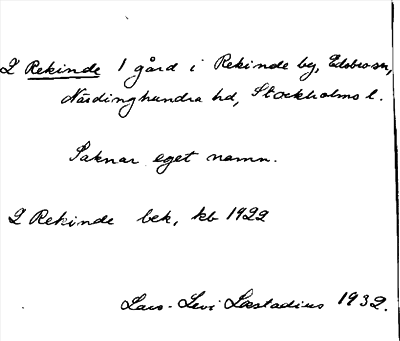 2 Rekinde 1 gård i Rekinde by, Edsbro sn,
Närdinghundra hd, Stockholms l.
Saknar eget namn.
2 Rekinde bek, kb 1922
Lars-Levi Læstadius 1932.